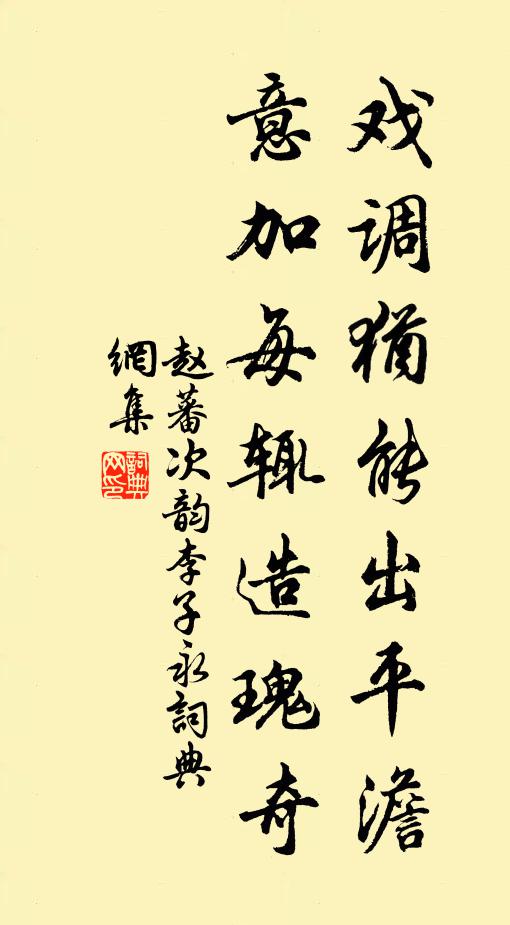 戏调犹能出平澹
意加每辄造瑰奇
赵蕃次韵李子永詞典
網集
詞典
网印